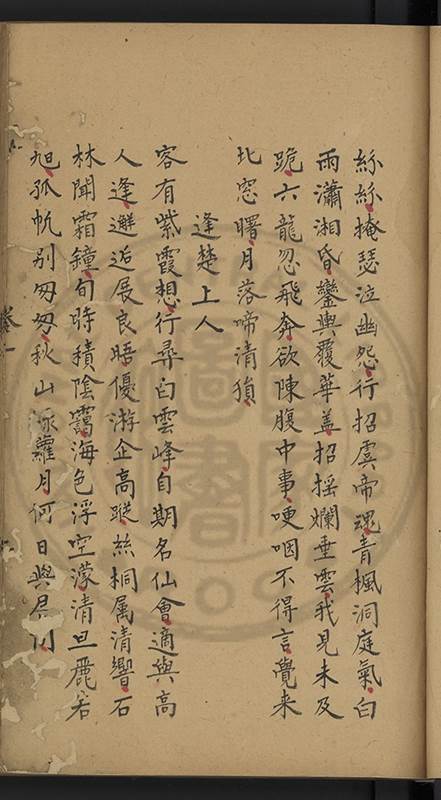 絲絲掩瑟泣幽怨行招虞帝魂青楓洞庭氣白
雨瀟湘昏鑾輿覆華蓋招搖爛垂雲我見未及
跪六龍忽飛奔欲陳腹中事哽咽不得言覺来
北窓曙月落啼清猿
逢楚上人
客有紫霞想行尋白雲峰自期名仙會適與高
人逢邂逅展良晤優游企高蹤絲桐属清響石
林聞霜鐘旬時積陰靄海色浮空濛清旦麗若
旭孤帆别匆匆秋山蘿月何日與